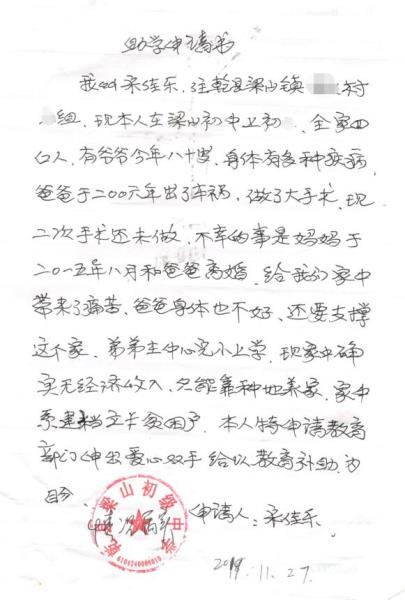 助学申请书
我叫梁佳乐,住乾县梁山镇 村
组,现本人在梁山初中上初 ,全家四
口人,有爷爷今年八十岁,身体有多种疾病,
爸爸于二00六年出了车祸,做了大手术,现
二次手术还未做,不幸的事是妈妈于
二0一五年八月和爸爸离婚,给我们家中
带来了痛苦、爸爸身体也不好、还要支撑
这个家,弟弟在中心完小上学,现家中确
实无经济收入,只能靠种地养家,家中
系建档立卡贫困户,本人特申请教育
部门伸出爱心双手给以教育补助,为
盼.
情况属实
申请人:梁佳乐
2019.11.27.
乾县梁山初级中学
6104240000010